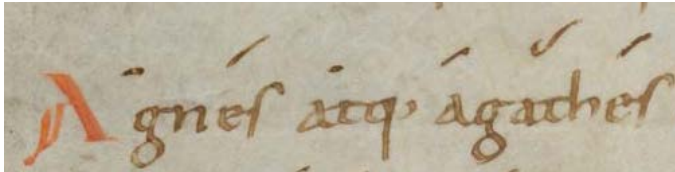 Agnes atq; agathes